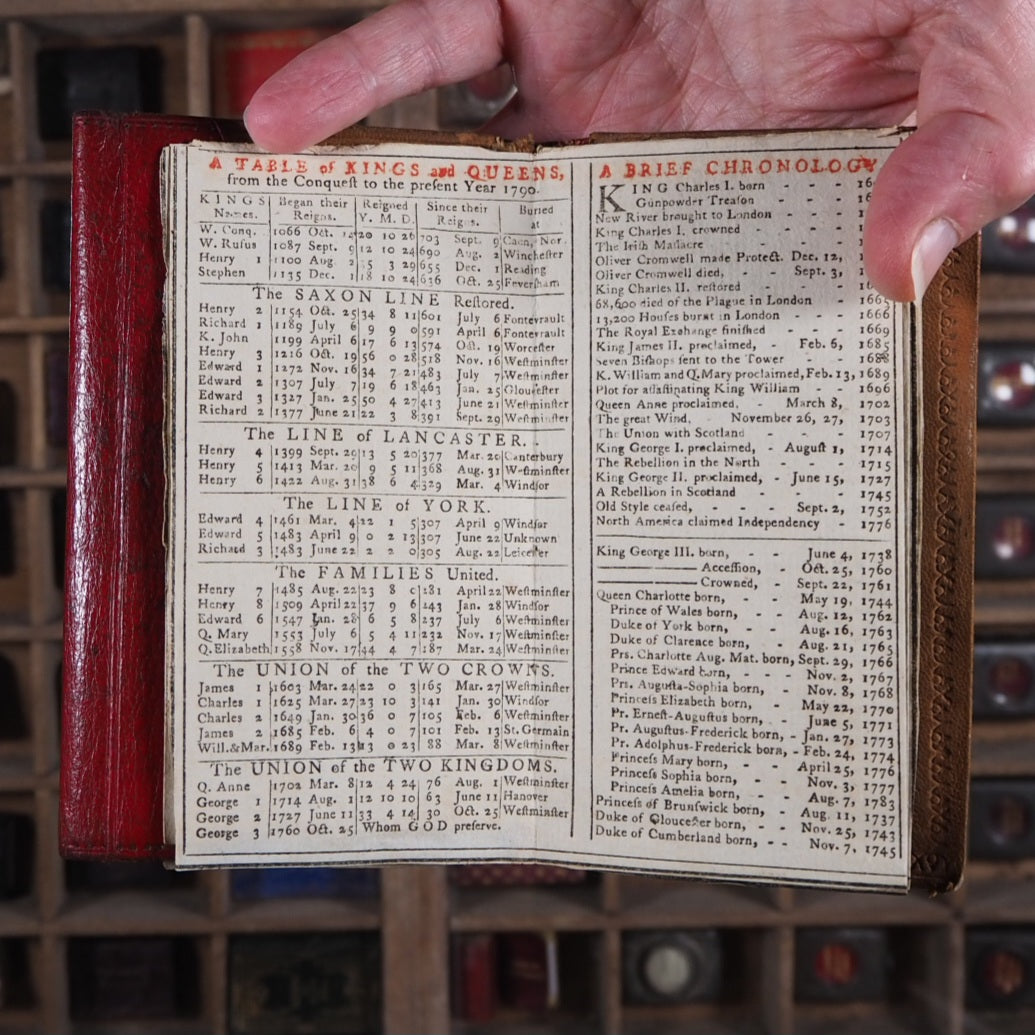 A TABLE of KINGS and QUEENS,
from the Conqueſt to the preſent Year 1790.
KINGS Names. Began their Reigns. Reigned Y. M. D. Since their Reigns. Buried at
W. Conq. 1066 Oct. 14 20 10 26 703 Sept. 9 Caen, Nor.
W. Rufus 1087 Sept. 9 12 10 24 690 Aug. 2 Wincheſter
Henry 1 1100 Aug. 2 35 3 29 655 Dec. 1 Reading
Stephen 1135 Dec. 1 18 10 24 636 Oct. 25 Feverſham
The SAXON LINE Reſtored.
Henry 2 1154 Oct. 25 34 8 11 601 July 6 Fontevrault
Richard 1 1189 July 6 9 9 0 591 April 6 Fontevrault
K. John 1199 April 6 17 6 13 574 Oct. 19 Worceſter
Henry 3 1216 Oct. 19 56 0 28 518 Nov. 16 Weſtminſter
Edward 1 1272 Nov. 16 34 7 21 483 July 7 Weſtminſter
Edward 2 1307 July 7 19 6 18 463 Jan. 25 Glouceſter
Edward 3 1327 Jan. 25 50 4 27 413 June 21 Weſtminſter
Richard 2 1377 June 21 22 3 8 391 Sept. 29 Weſtminſter
The LINE of LANCASTER.
Henry 4 1399 Sept. 29 13 5 20 377 Mar. 20 Canterbury
Henry 5 1413 Mar. 20 9 5 11 368 Aug. 31 Weſtminſter
Henry 6 1422 Aug. 31 38 6 4 329 Mar. 4 Windſor
The LINE of YORK.
Edward 4 1461 Mar. 4 22 1 5 307 April 9 Windſor
Edward 5 1483 April 9 0 2 13 307 June 22 Unknown
Richard 3 1483 June 22 2 2 0 305 Aug. 22 Leiceſter
The FAMILIES United.
Henry 7 1485 Aug. 22 23 8 0 281 April 22 Weſtminſter
Henry 8 1509 April 22 37 9 6 243 Jan. 28 Windſor
Edward 6 1547 Jan. 28 6 5 8 237 July 6 Weſtminſter
Q. Mary 1553 July 6 5 4 11 232 Nov. 17 Weſtminſter
Q. Elizabeth 1558 Nov. 17 44 4 7 187 Mar. 24 Weſtminſter
The UNION of the TWO CROWNS.
James 1 1603 Mar. 24 22 0 3 165 Mar. 27 Weſtminſter
Charles 1 1625 Mar. 27 23 10 3 141 Jan. 30 Windſor
Charles 2 1649 Jan. 30 36 0 7 105 Feb. 6 Weſtminſter
James 2 1685 Feb. 6 4 0 7 101 Feb. 13 St. Germain
Will.&Mar. 1689 Feb. 13 13 0 23 88 Mar. 8 Weſtminſter
The UNION of the TWO KINGDOMS.
Q. Anne 1702 Mar. 8 12 4 24 76 Aug. 1 Weſtminſter
George 1 1714 Aug. 1 12 10 10 63 June 11 Hanover
George 2 1727 June 11 33 4 14 30 Oct. 25 Weſtminſter
George 3 1760 Oct. 25 Whom GOD preſerve.
A BRIEF CHRONOLOGY
KING Charles I. born - - -
Gunpowder Treaſon - - -
New River brought to London - -
King Charles I. crowned - - -
The Iriſh Maſſacre - - -
Oliver Cromwell made Protect. Dec. 12,
Oliver Cromwell died, - - Sept. 3,
King Charles II. reſtored - -
68,600 died of the Plague in London - 1665
13,200 Houſes burnt in London - 1666
The Royal Exchange finiſhed - - 1669
King James II. proclaimed, - Feb. 6, 1685
Seven Biſhops ſent to the Tower - - 1688
K. William and Q. Mary proclaimed, Feb. 13, 1689
Plot for aſſaſſinating King William - - 1696
Queen Anne proclaimed, - March 8, 1702
The great Wind, November 26, 27, 1703
The Union with Scotland - - - 1707
King George I. proclaimed, - Auguſt 1, 1714
The Rebellion in the North - - 1715
King George II. proclaimed, - June 15, 1727
A Rebellion in Scotland - - - 1745
Old Style ceaſed, - - - Sept. 2, 1752
North America claimed Independency - 1776
King George III. born, - - June 4, 1738
Acceſſion, - Oct. 25, 1760
Crowned, - Sept. 22, 1761
Queen Charlotte born, - - May 19, 1744
Prince of Wales born, - - Aug. 12, 1762
Duke of York born, - - Aug. 16, 1763
Duke of Clarence born, - - Aug. 21, 1765
Prs. Charlotte Aug. Mat. born, Sept. 29, 1766
Prince Edward born, - - Nov. 2, 1767
Prs. Auguſta-Sophia born, - Nov. 8, 1768
Princeſs Elizabeth born, - May 22, 1770
Pr. Erneſt-Auguſtus born, - June 5, 1771
Pr. Auguſtus-Frederick born, - Jan. 27, 1773
Pr. Adolphus-Frederick born, - Feb. 24, 1774
Princeſs Mary born, - - April 25, 1776
Princeſs Sophia born, - - Nov. 3, 1777
Princeſs Amelia born, - - Aug. 7, 1783
Princeſs of Brunſwick born, - Aug. 11, 1737
Duke of Glouceſter born, - - Nov. 25, 1743
Duke of Cumberland born, - - Nov. 7, 1745